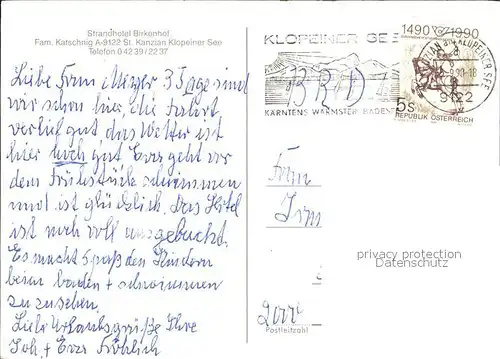 Strandhotel Birkenhof
Fam. Katschnig A-9122 St. Kanzian Klopeiner See
Telefon 0 42 39 / 22 37
Liebe Frau Meyer 3 Tage sind
wir schon hier die Fahrt
verlief gut das Wetter ist
hier auch gut Eva geht vor
dem Frühstück schwimmen
und ist glücklich. Das Hotel
ist noch voll ausgebucht.
Es macht spaß den Kindern
beim baden + schwimmen
zuzusehen.
Liebe Urlaubsgrüße Ihre
Joh. + Eva Fröhlich
KLOPEINER SEE
BRD
KÄRNTENS WÄRMSTER BADESEE
1490 1990
9122
5s
REPUBLIK ÖSTERREICH
Frau
Irm
2000
Postleitzahl
privacy protection
Datenschutz